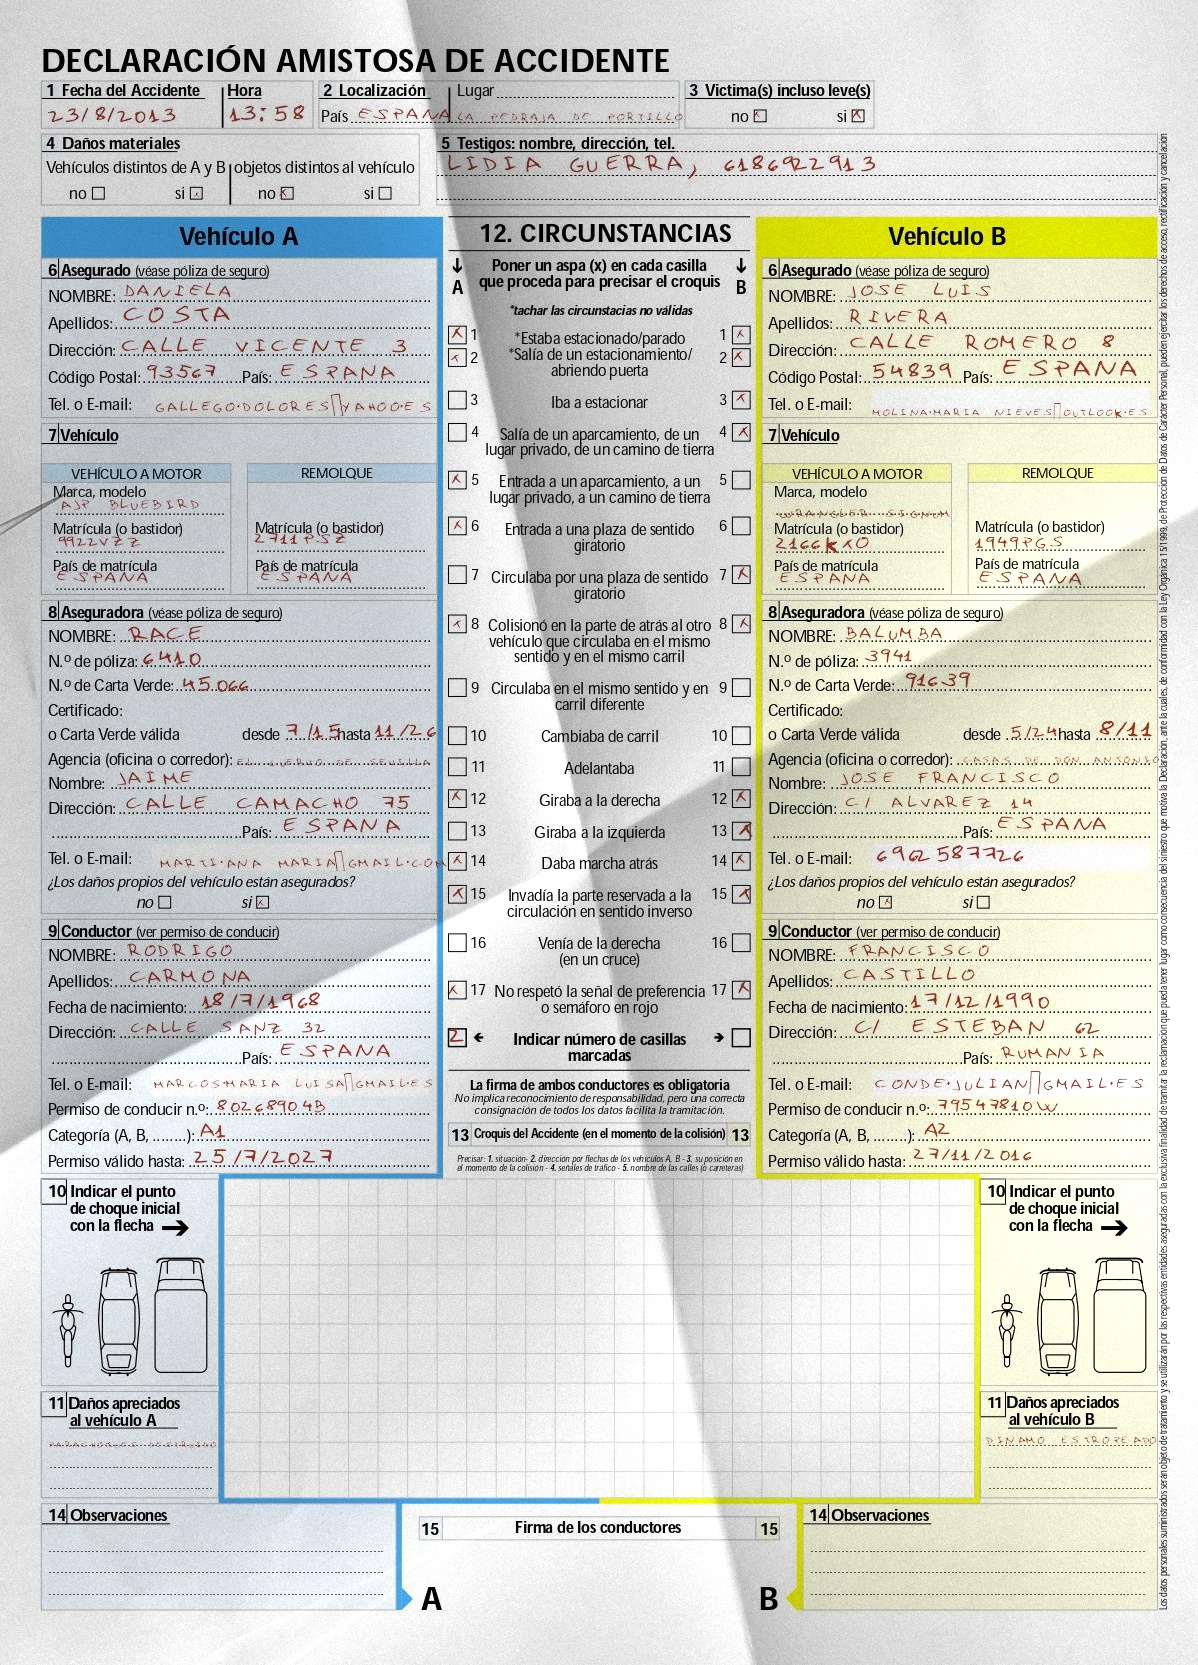 DECLARACIÓN AMISTOSA DE ACCIDENTE
1 Fecha del Accidente Hora 2 Localización Lugar 3 Victima(s) incluso leve(s)
23/8/2013 13:58 País ESPANA LA PEDRAJA DE PORTILLO no X si X
4 Daños materiales 5 Testigos: nombre, dirección, tel.
Vehículos distintos de A y B objetos distintos al vehículo LIDIA GUERRA, 6186922913
no si X no X si
Vehículo A
6 Asegurado (véase póliza de seguro)
NOMBRE: DANIELA
Apellidos: COSTA
Dirección: CALLE VICENTE 3
Código Postal: 93567 País: ESPANA
Tel. o E-mail: GALLEGO.DOLORES▯YAHOO.ES
7 Vehículo
VEHÍCULO A MOTOR REMOLQUE
Marca, modelo
AJP BLUEBIRD
Matrícula (o bastidor) Matrícula (o bastidor)
9922VZZ 2711PSZ
País de matrícula País de matrícula
ESPANA ESPANA
8 Aseguradora (véase póliza de seguro)
NOMBRE: RACE
N.º de póliza: 6410
N.º de Carta Verde: 45.066
Certificado:
o Carta Verde válida desde 7/15 hasta 11/26
Agencia (oficina o corredor): EL CUERVO DE SEVILLA
Nombre: JAIME
Dirección: CALLE CAMACHO 75
País: ESPANA
Tel. o E-mail: MARTI.ANA MARIA▯GMAIL.COM
¿Los daños propios del vehículo están asegurados?
no si X
9 Conductor (ver permiso de conducir)
NOMBRE: RODRIGO
Apellidos: CARMONA
Fecha de nacimiento: 18/7/1968
Dirección: CALLE SANZ 32
País: ESPANA
Tel. o E-mail: MARCOS.MARIA LUISA▯GMAIL.ES
Permiso de conducir n.º: 80268904B
Categoría (A, B, ........): A1
Permiso válido hasta: 25/7/2027
12. CIRCUNSTANCIAS
A Poner un aspa (x) en cada casilla B
que proceda para precisar el croquis
*tachar las circunstacias no válidas
X 1 *Estaba estacionado/parado 1 X
X 2 *Salía de un estacionamiento/ 2 X
abriendo puerta
3 Iba a estacionar 3 X
4 Salía de un aparcamiento, de un 4 X
lugar privado, de un camino de tierra
X 5 Entrada a un aparcamiento, a un 5
lugar privado, a un camino de tierra
X 6 Entrada a una plaza de sentido 6
giratorio
7 Circulaba por una plaza de sentido 7 X
giratorio
X 8 Colisionó en la parte de atrás al otro 8 X
vehículo que circulaba en el mismo
sentido y en el mismo carril
9 Circulaba en el mismo sentido y en 9
carril diferente
10 Cambiaba de carril 10
11 Adelantaba 11
X 12 Giraba a la derecha 12 X
13 Giraba a la izquierda 13 X
X 14 Daba marcha atrás 14 X
X 15 Invadía la parte reservada a la 15 X
circulación en sentido inverso
16 Venía de la derecha 16
(en un cruce)
X 17 No respetó la señal de preferencia 17 X
o semáforo en rojo
2 Indicar número de casillas
marcadas
La firma de ambos conductores es obligatoria
No implica reconocimiento de responsabilidad, pero una correcta
consignación de todos los datos facilita la tramitación.
13 Croquis del Accidente (en el momento de la colisión) 13
Precisar: 1. situación- 2. dirección por flechas de los vehículos A, B - 3. su posición en
el momento de la colisión - 4. señales de tráfico - 5. nombre de las calles (o carreteras)
Vehículo B
6 Asegurado (véase póliza de seguro)
NOMBRE: JOSE LUIS
Apellidos: RIVERA
Dirección: CALLE ROMERO 8
Código Postal: 54839 País: ESPANA
Tel. o E-mail: MOLINA.MARIA NIEVES▯OUTLOOK.ES
7 Vehículo
VEHÍCULO A MOTOR REMOLQUE
Marca, modelo
WRANGLER SIGNUM
Matrícula (o bastidor) Matrícula (o bastidor)
2166KXO 1949PGS
País de matrícula País de matrícula
ESPANA ESPANA
8 Aseguradora (véase póliza de seguro)
NOMBRE: BALUMBA
N.º de póliza: 3941
N.º de Carta Verde: 91639
Certificado:
o Carta Verde válida desde 5/24 hasta 8/11
Agencia (oficina o corredor): CASAS DE DON ANTONIO
Nombre: JOSE FRANCISCO
Dirección: C/ ALVAREZ 14
País: ESPANA
Tel. o E-mail: 6962587726
¿Los daños propios del vehículo están asegurados?
no X si
9 Conductor (ver permiso de conducir)
NOMBRE: FRANCISCO
Apellidos: CASTILLO
Fecha de nacimiento: 17/12/1990
Dirección: C/ ESTEBAN 62
País: RUMANIA
Tel. o E-mail: CONDE.JULIAN▯GMAIL.ES
Permiso de conducir n.º: 79547810W
Categoría (A, B, ........): A2
Permiso válido hasta: 27/11/2016
10 Indicar el punto
de choque inicial
con la flecha
11 Daños apreciados
al vehículo A
PARACHOQUES DESTRUIDO
10 Indicar el punto
de choque inicial
con la flecha
11 Daños apreciados
al vehículo B
DINAMO ESTROPEADO
14 Observaciones
15 Firma de los conductores 15
A B
14 Observaciones
Los datos personales suministrados serán objeto de tratamiento y se utilizarán por las respectivas entidades aseguradas con la exclusiva finalidad de tramitar la reclamación que pueda tener lugar como consecuencia del siniestro que motiva la Declaración, ante la cuales, de conformidad con la Ley Orgánica 15/1999, de Protección de Datos de Carácter Personal, pueden ejercitar los derechos de acceso, rectificación y cancelación